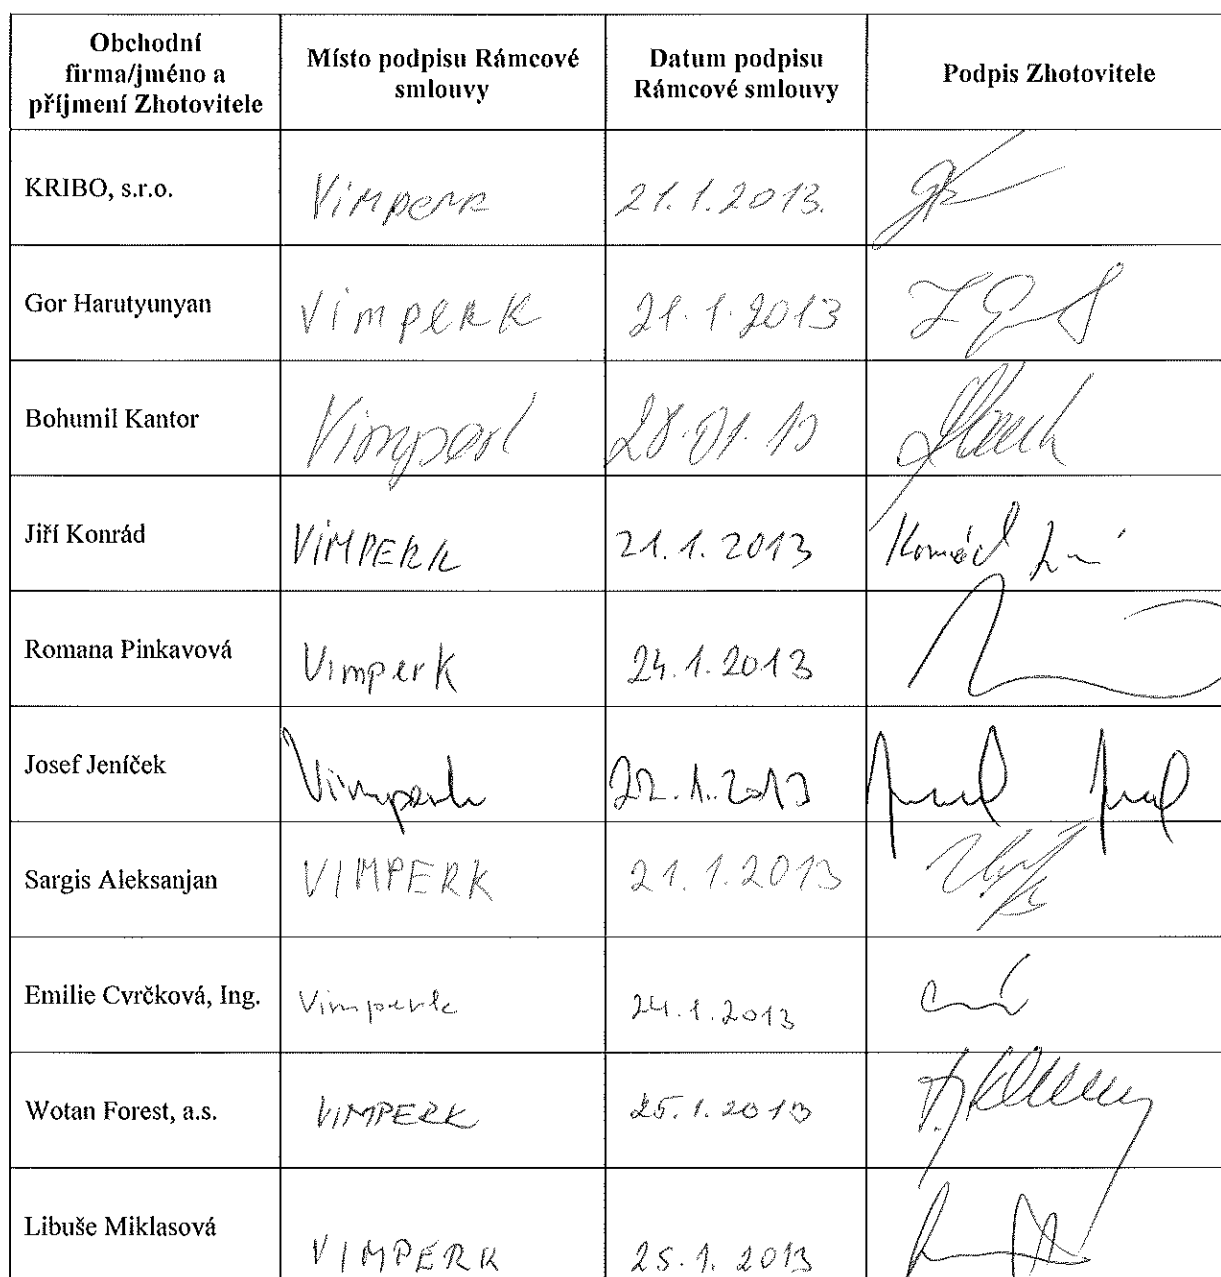 Obchodní
firma/jméno a
příjmení Zhotovitele
Místo podpisu Rámcové
smlouvy
Datum podpisu
Rámcové smlouvy
Podpis Zhotovitele
KRIBO, s.r.o. Vimperk 21.1.2013.
Gor Harutyunyan Vimperk 21.1.2013
Bohumil Kantor Vimperk 28.01.13
Jiří Konrád VIMPERK 21.1.2013 Konrád Jiří
Romana Pinkavová Vimperk 24.1.2013
Josef Jeníček Vimperk 22.1.2013
Sargis Aleksanjan VIMPERK 21.1.2013
Emilie Cvrčková, Ing. Vimperk 24.1.2013
Wotan Forest, a.s. VIMPERK 25.1.2013
Libuše Miklasová VIMPERK 25.1.2013